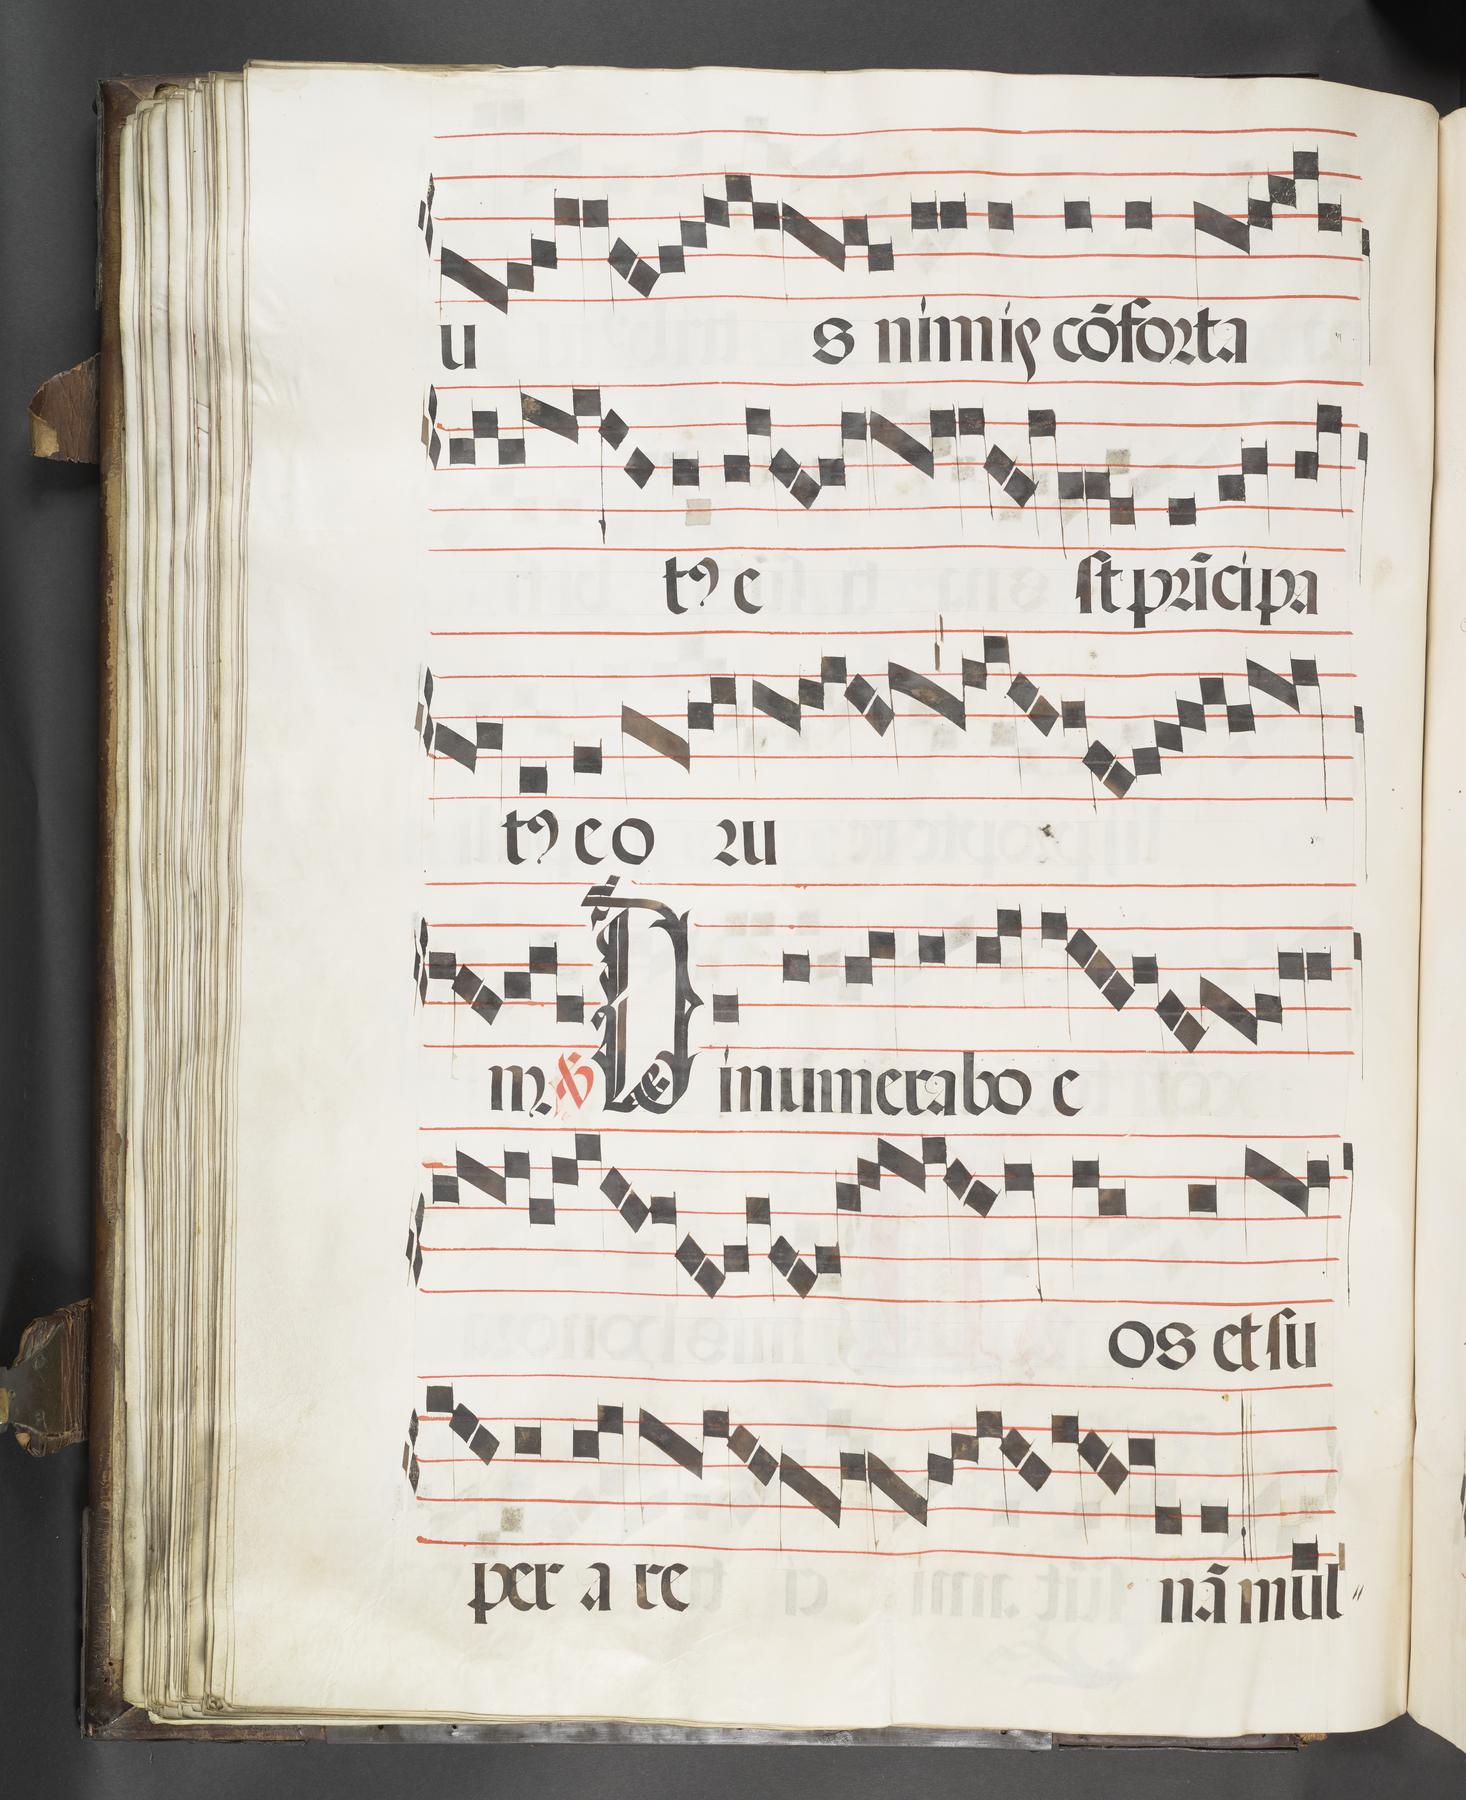 u s nimis cōforta
tꝰ e st prīcipa
tꝰ e o ru
m. ℣ Dinumerabo e
os et su
per a re nā mul〃